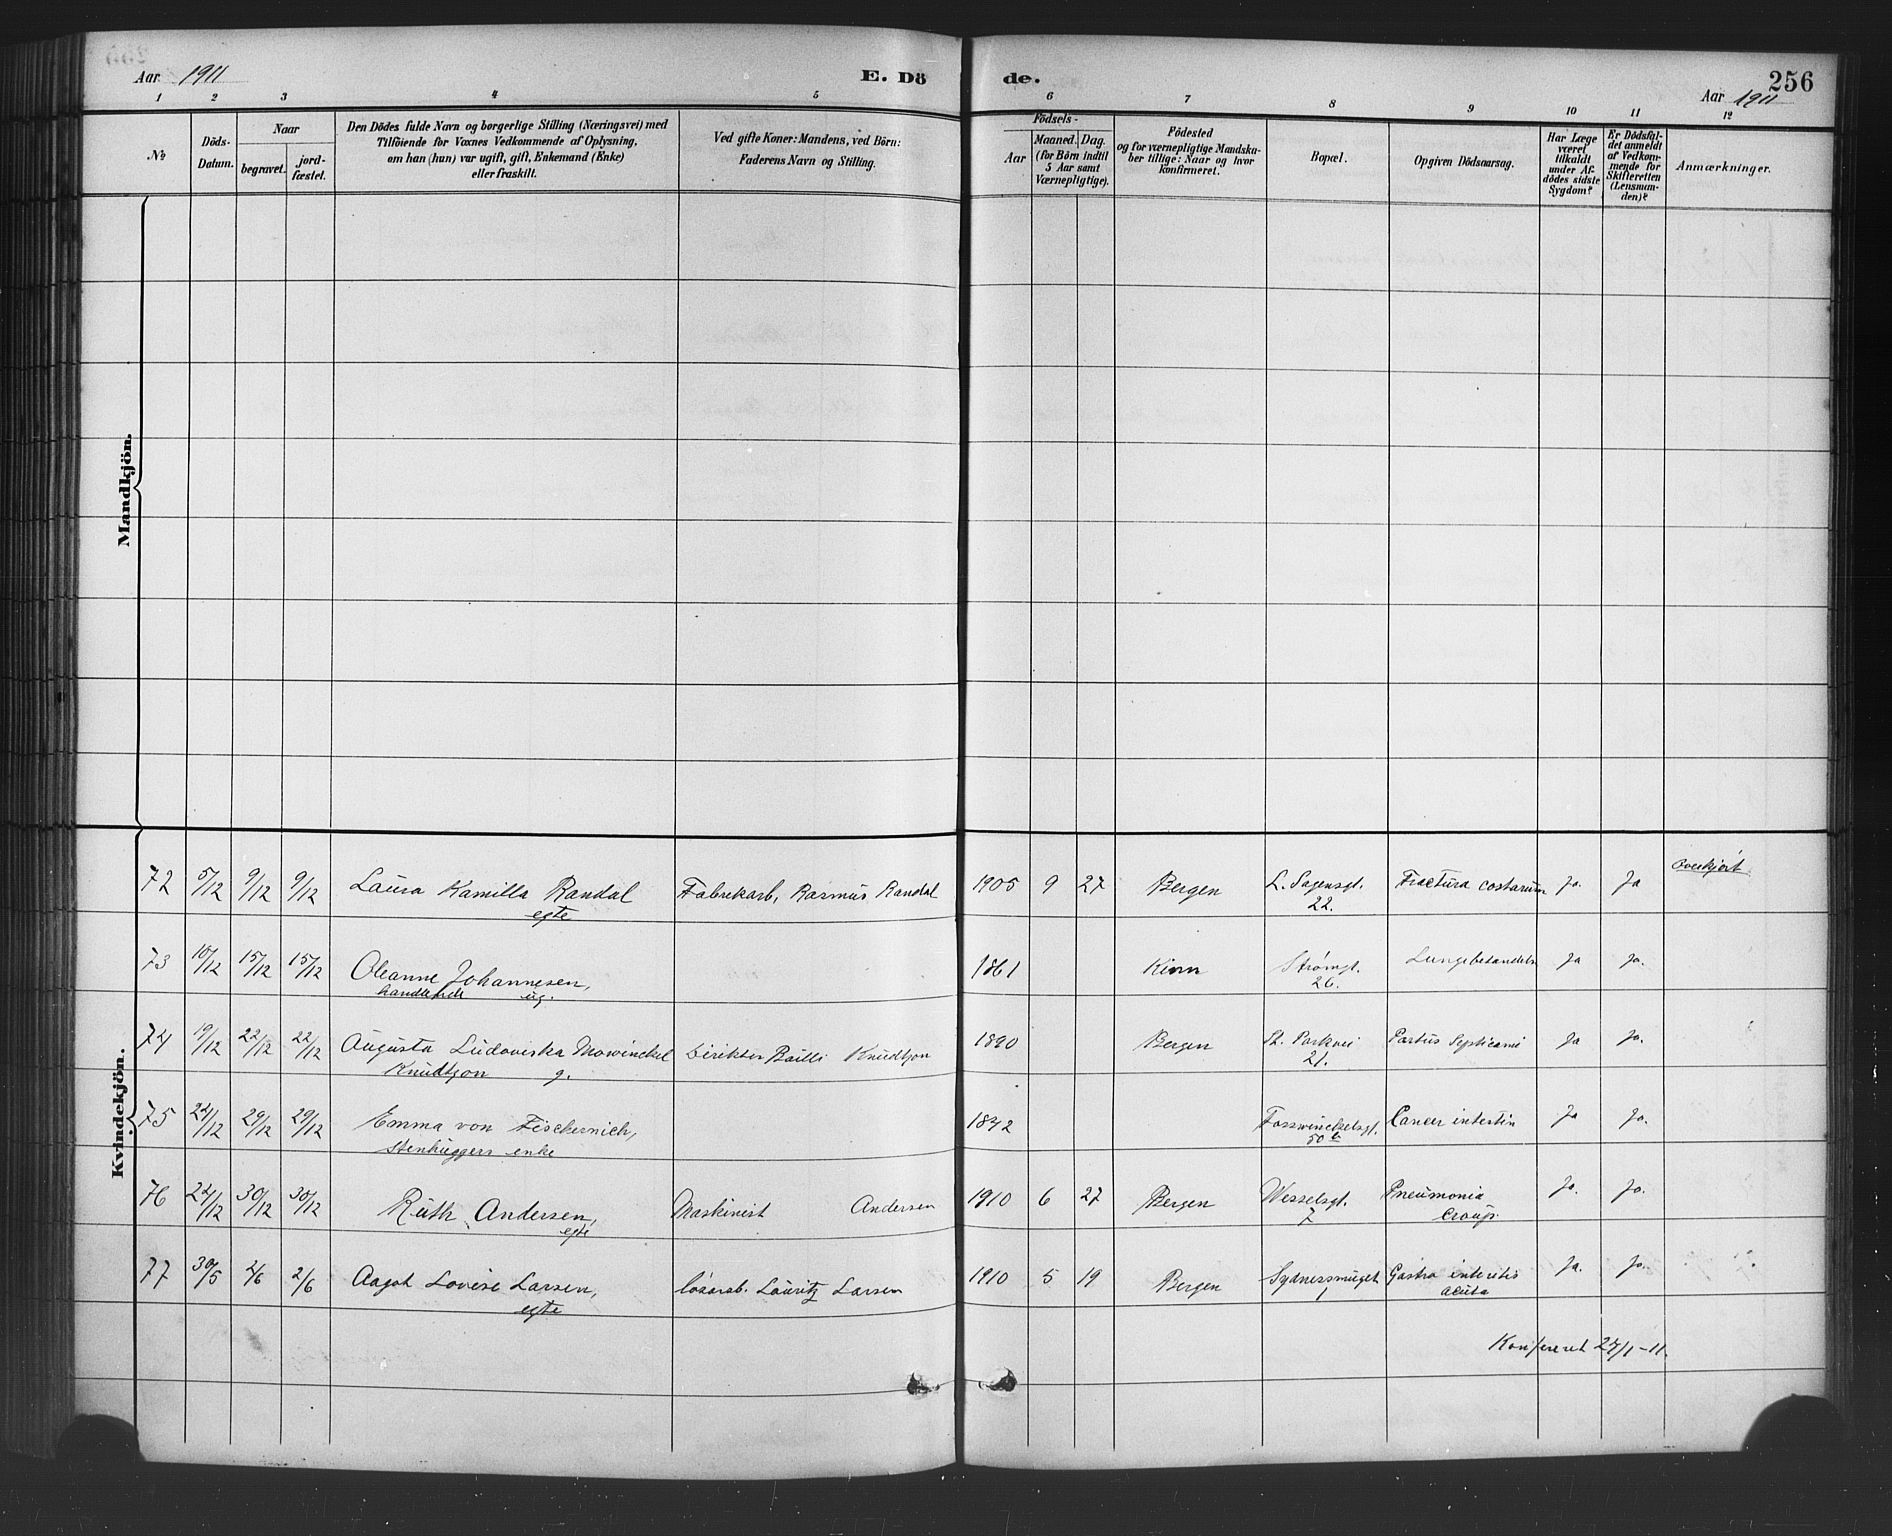 Aar 1911 E. Dö de. 256
Aar 1911
1 2 3 4 5 6 7 8 9 10 11 12
№
Döds-
Datum.
Naar
begravet.
jord-
fæstet.
Den Dödes fulde Navn og borgerlige Stilling (Næringsvei) med
Tilföiende for Voxnes Vedkommende af Oplysning,
om han (hun) var ugift, gift, Enkemand (Enke)
eller fraskilt.
Ved gifte Koner: Mandens, ved Börn:
Faderens Navn og Stilling.
Födsels-
Aar
Maaned. Dag.
(for Börn indtil
5 Aar samt
Værnepligtige).
Födested
og for værnepligtige Mandska-
ber tillige: Naar og hvor
konfirmeret.
Bopæl.
Opgiven Dödsaarsag.
Har Læge
været
tilkaldt
under Af-
dödes sidste
Sygdom?
Er Dödsfal-
det anmeldt
af Vedkom-
mende for
Skifteretten
(Lensman-
den)?
Anmærkninger.
Mandkjön.
Kvindekjön.
72 5/12 9/12 9/12 Laura Kamilla Randal Fabrikarb, Rasmus Randal 1905 9 27 Bergen L. Sagensgt. Fractura costarum Ja. Ja Overkjørt
egte 22.
73 10/12 15/12 15/12 Oleanne Johannesen, 1861 Kinn Strømgt. Ja Ja.
handlende ug. 26.
74 19/12 22/12 22/12 Augusta Ludoviska Mowinckel Direktør Knudtzon 1890 Bergen St. Parkvei Partus Septicæmi Ja Ja.
Knudtzon g. 21.
75 24/12 29/12 29/12 Emma von Fischernich, 1842 Fosswinckelsgt. Cancer intestin Ja Ja.
Stenhuggers enke 50 b
76 24/12 30/12 30/12 Ruth Andersen, Maskinist Andersen 1910 6 27 Bergen Wesselsgt. Pneumonia Ja. Ja.
egte 7 croup.
77 30/5 2/6 2/6 Aagot Lovise Larsen, løsarb. Lauritz Larsen 1910 5 19 Bergen Sydnessmuget Gastro interitis Ja. Ja.
egte 1 acuta
Konfereret 27/1-11.